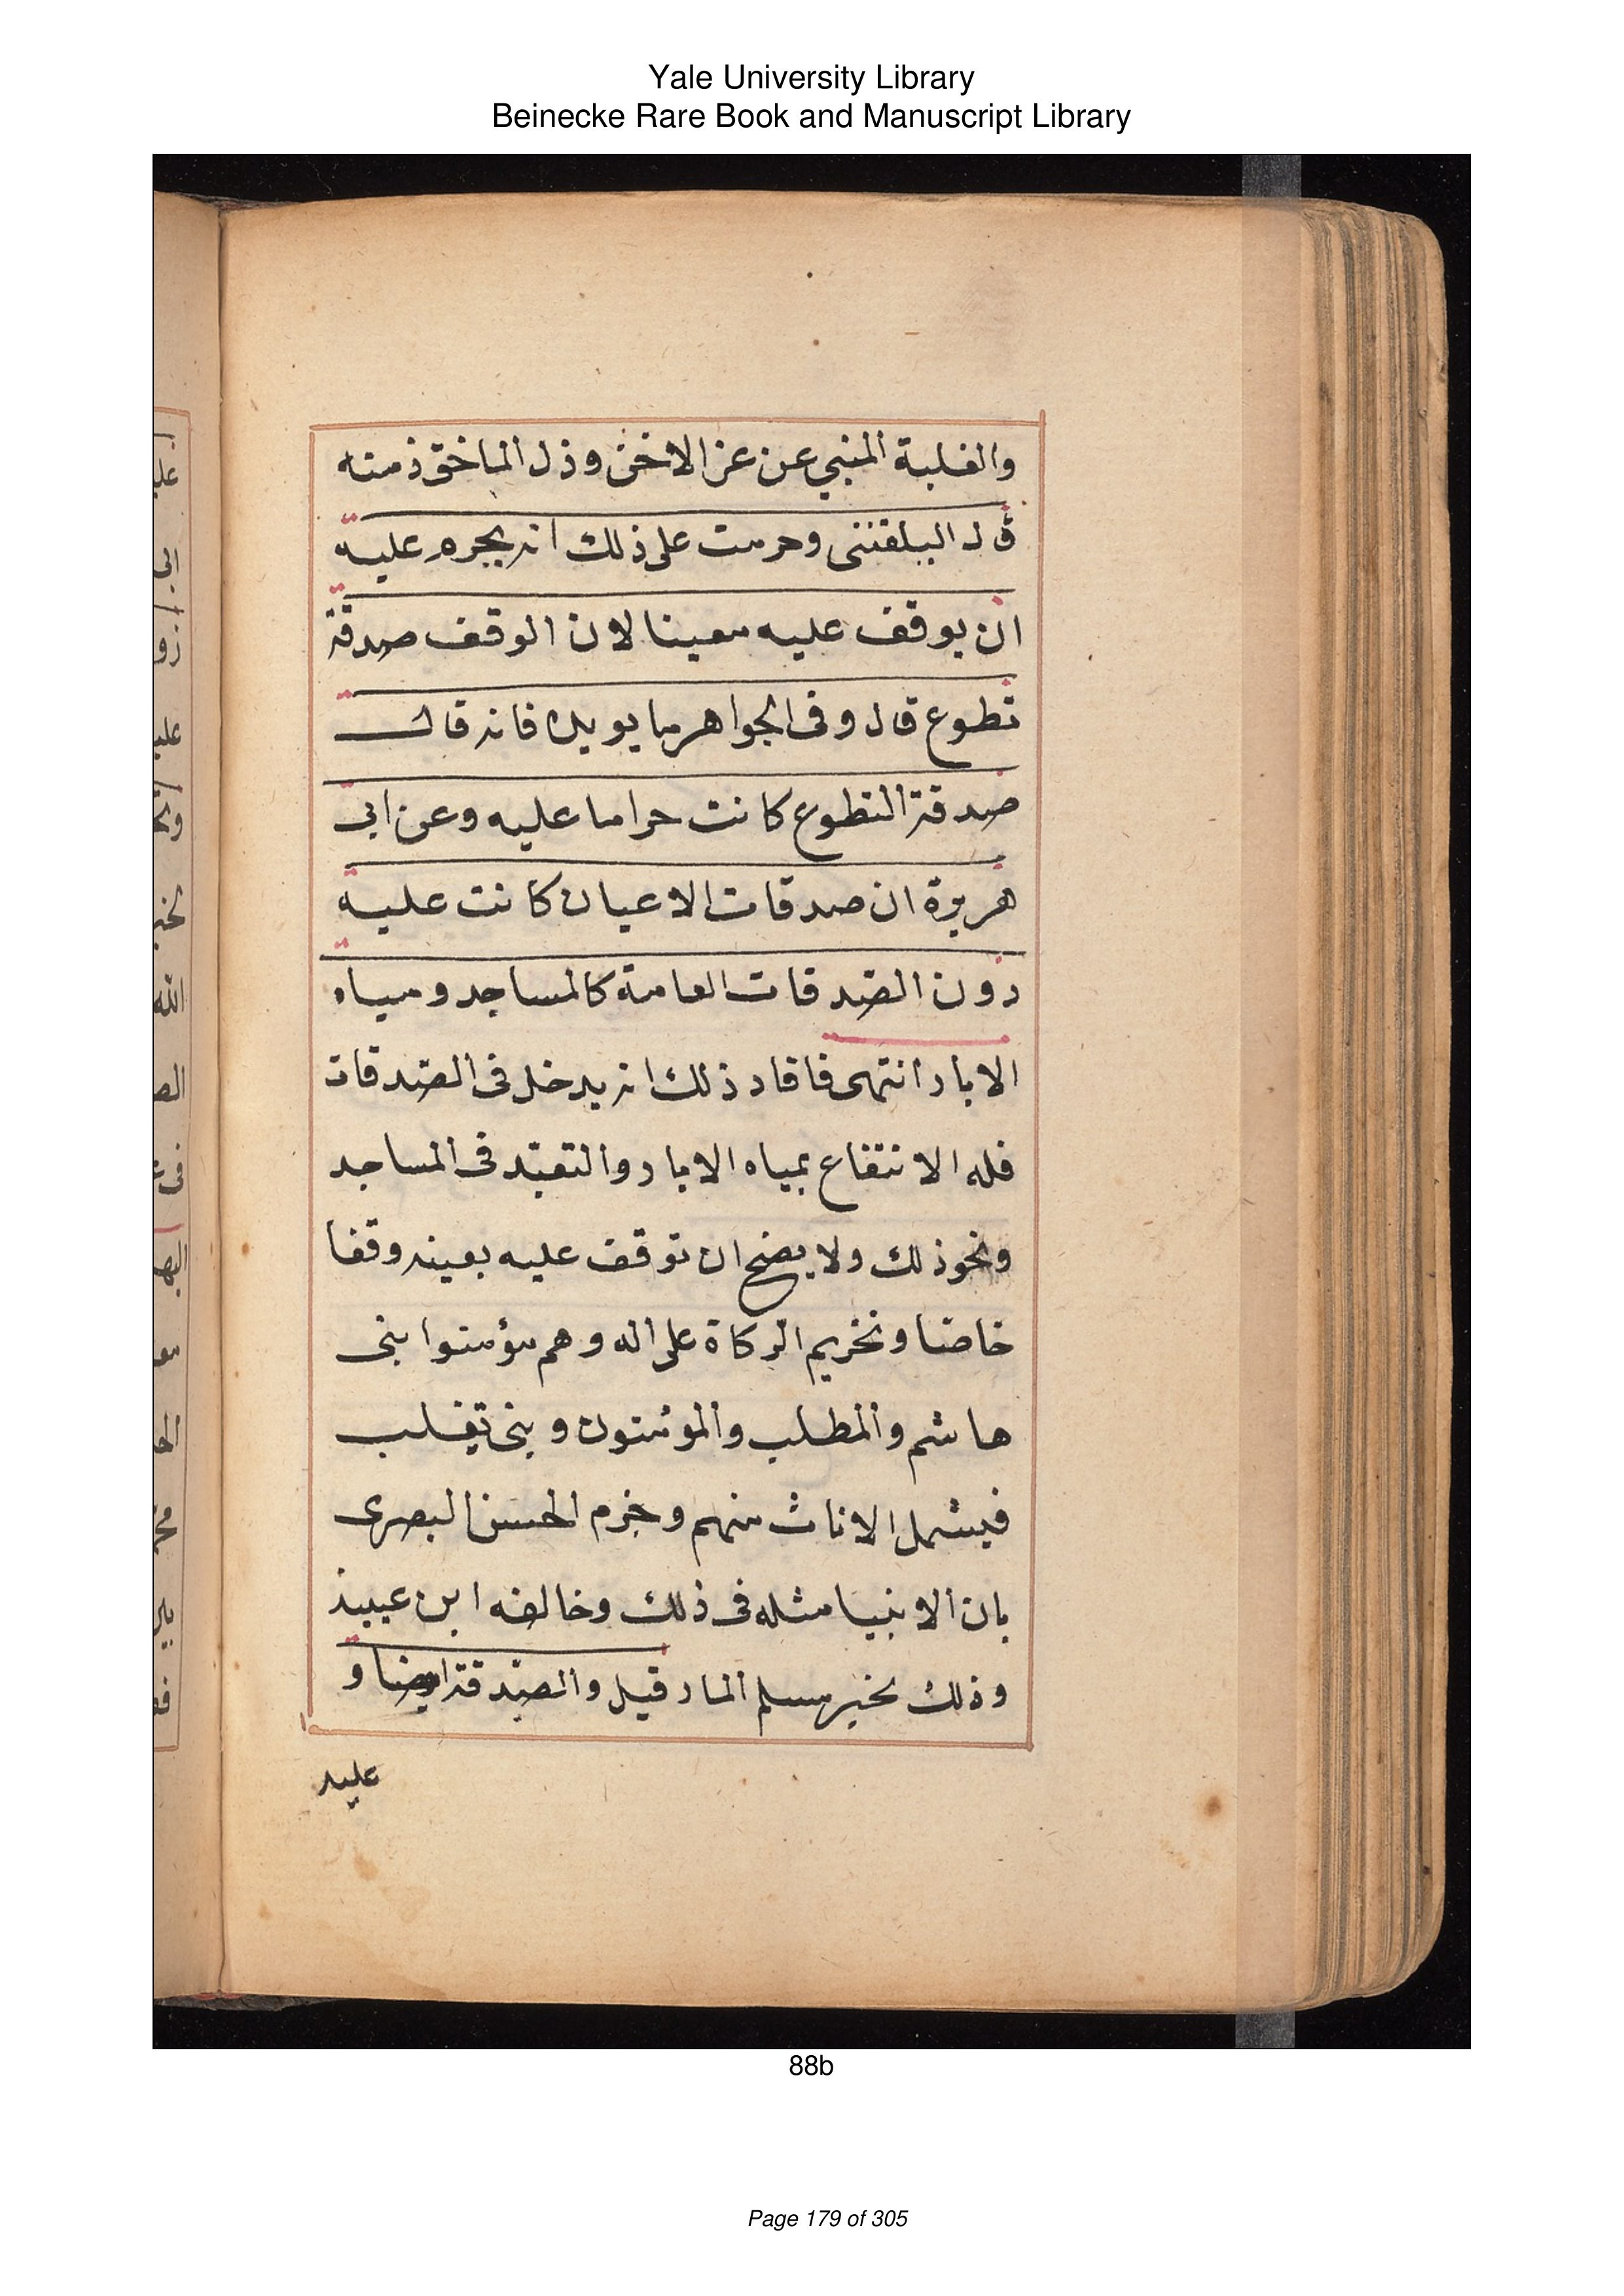 Yale University Library
Beinecke Rare Book and Manuscript Library
والغلبة المنبي عن عز الاخذ وذل الماخوذ منه
قال البلقيني وحرمت على ذلك انه يحرم عليه
ان يوقف عليه معينا لان الوقف صدقة
تطوع قال وفى الجواهر ما يويده فانه قال
صدقة التطوع كانت حراما عليه وعن ابي
هريرة ان صدقات الاعيان كانت عليه
دون الصدقات العامة كالمساجد ومياه
الابار انتهى فافاد ذلك انه يدخل فى الصدقات
فله الانتفاع بمياه الابار والتعبد فى المساجد
ونحو ذلك ولا يصح ان توقف عليه بعينه وقفا
خاصا وتحريم الزكاة على اله وهم مؤمنوا بنى
هاشم والمطلب والمومنون و بنى تغلب
فيشمل الاناث منهم وجزم الحسن البصرى
بان الانبيا مثله فى ذلك وخالفه ابن عيينة
وذلك لخبر مسلم المار قيل والصدقة ايضا و
عليه
88b
Page 179 of 305